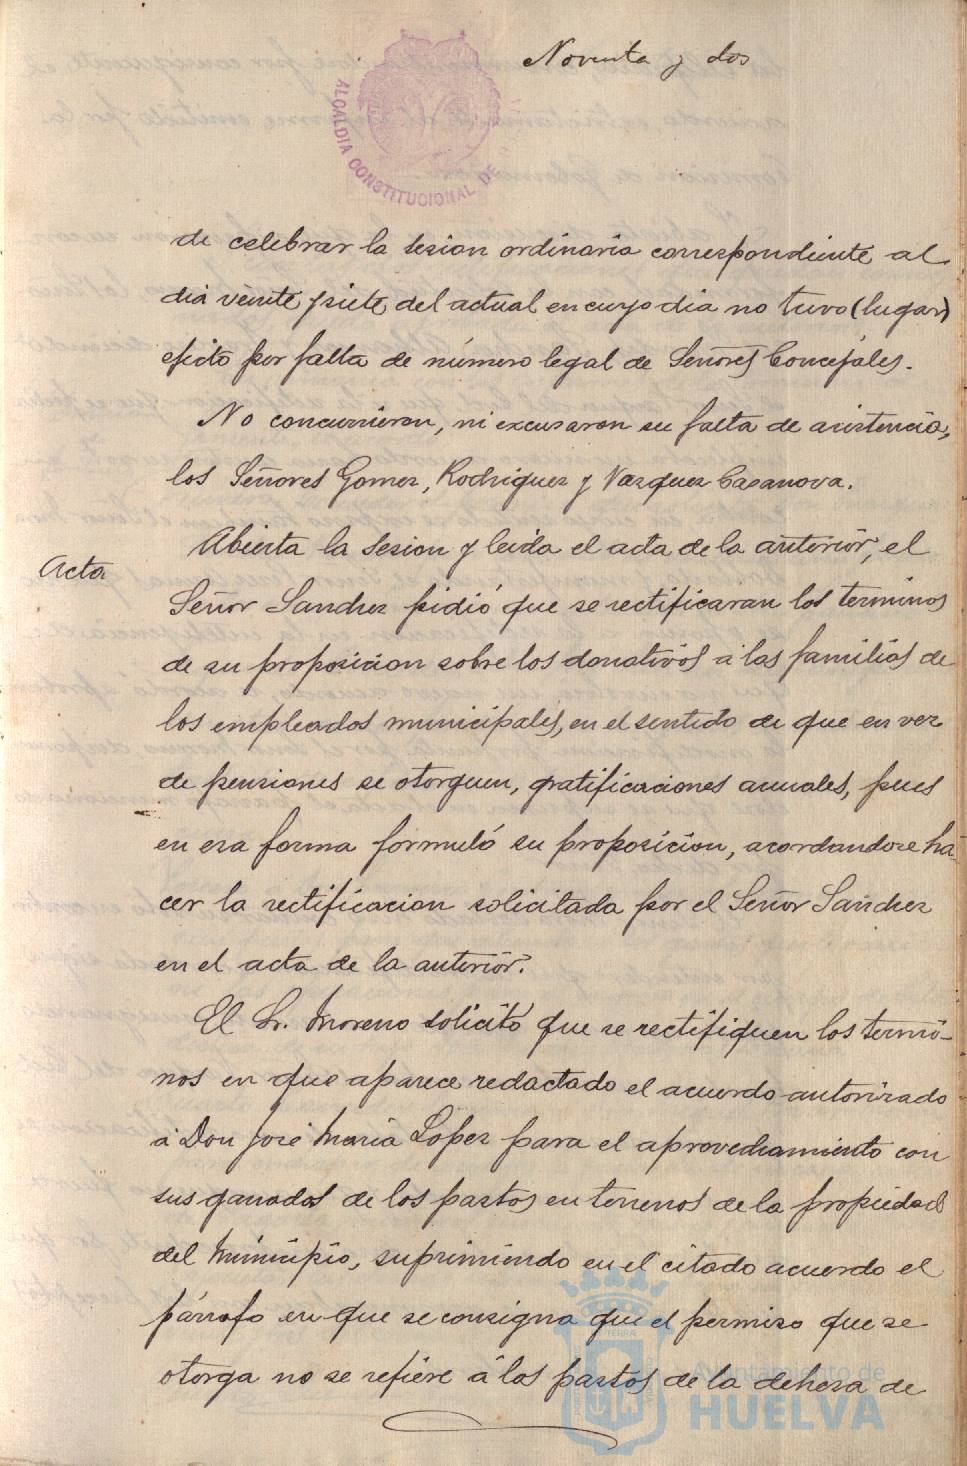 Noventa y dos
ALCALDIA CONSTITUCIONAL DE
de celebrar la sesion ordinaria correspondiente al
dia veinte y siete del actual en cuyo dia no tuvo (lugar)
efecto por falta de número legal de Señores Concejales.
No concurrieron, ni excusaron su falta de asistencia,
los Señores Gomez, Rodriguez y Vazquez Casanova.
Acta
Abierta la sesion y leida el acta de la anterior, el
Señor Sanchez pidió que se rectificaran los terminos
de su proposicion sobre los donativos á las familias de
los empleados municipales, en el sentido de que en vez
de pensiones se otorguen, gratificaciones anuales, pues
en esa forma formuló su proposicion, acordandose ha-
cer la rectificacion solicitada por el Señor Sanchez
en el acta de la anterior.
El Sr. Moreno solicitó que se rectifiquen los termi-
nos en que aparece redactado el acuerdo autorizado
á Don José Maria Lopez para el aprovechamiento con
sus ganados de los pastos en terrenos de la propiedad
del Municipio, suprimiendo en el citado acuerdo el
párrafo en que se consigna que el permiso que se
otorga no se refiere á los pastos de la dehesa de
Ayuntamiento de
HUELVA